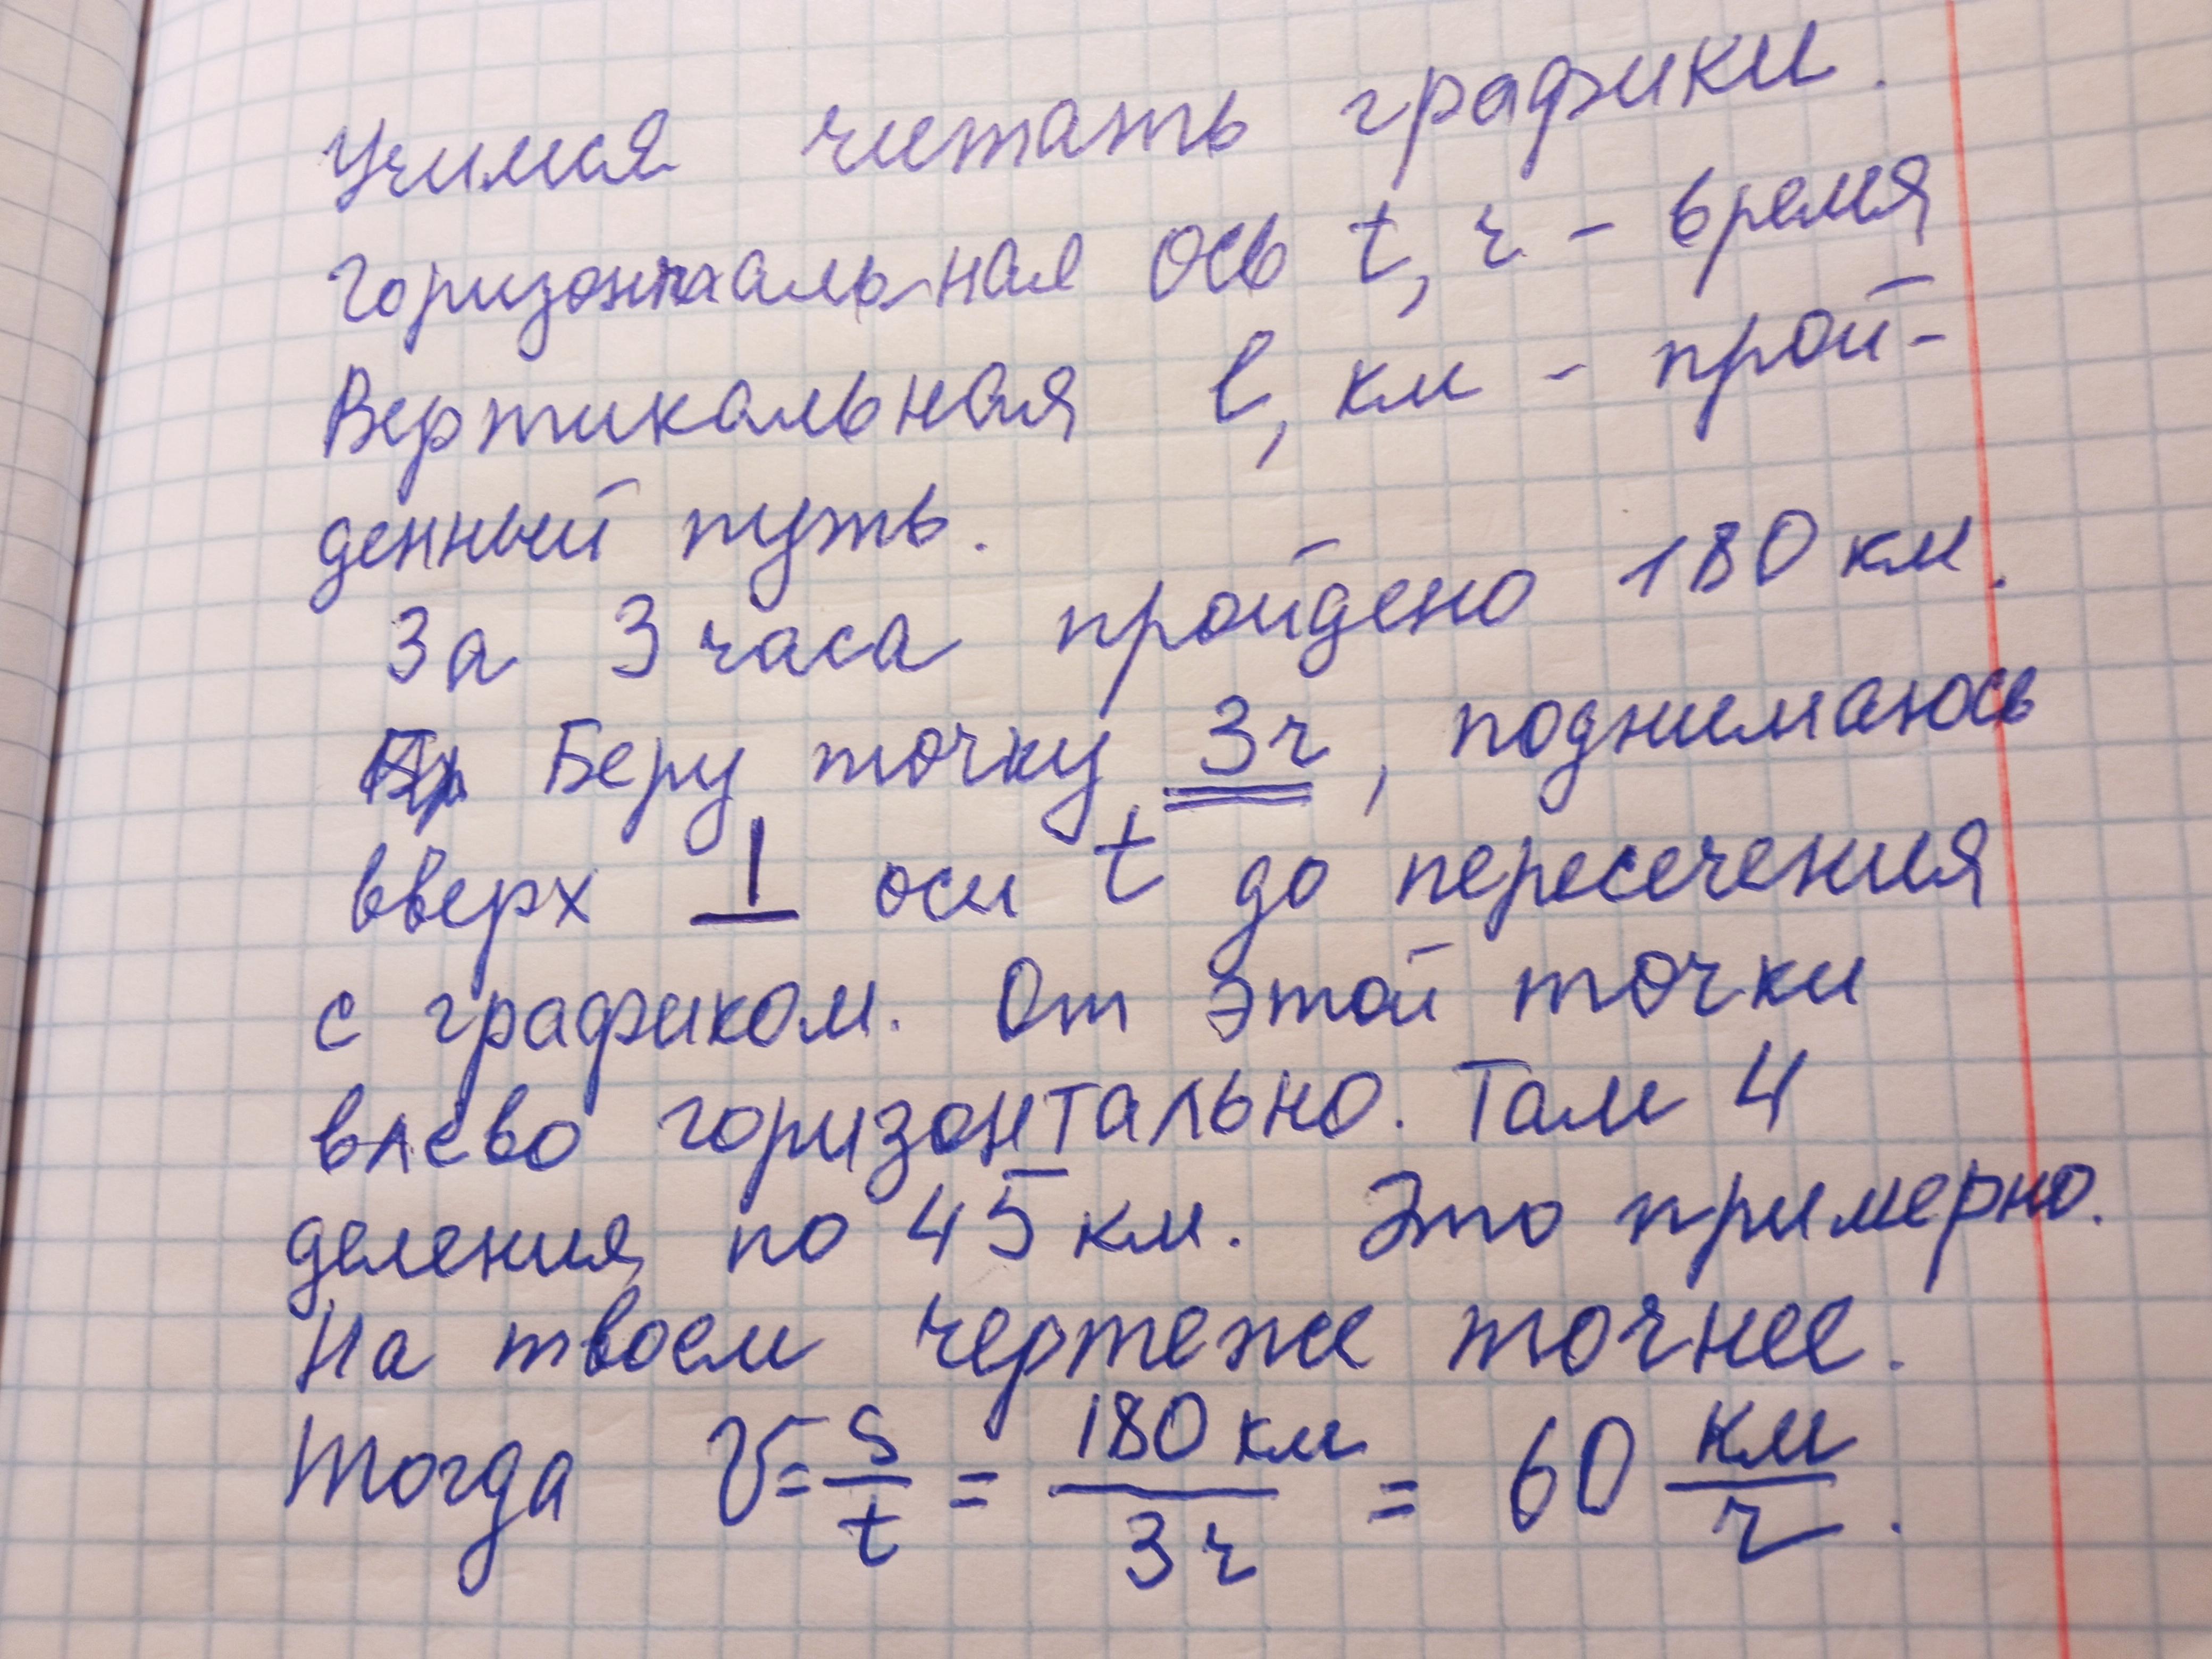 Учимся читать графики.
Горизонтаальная ось t, ч - время
Вертикальная l, км - прой-
денный путь.
За 3 часа пройдено 180 км.
Беру точку 3ч, поднимаюсь
вверх ⊥ оси t до пересечения
с графиком. От этой точки
влево горизонтально. Там 4
деления по 45 км. Это примерно.
На твоем чертеже точнее.
Тогда V = S/t = 180 км/3ч = 60 км/ч.